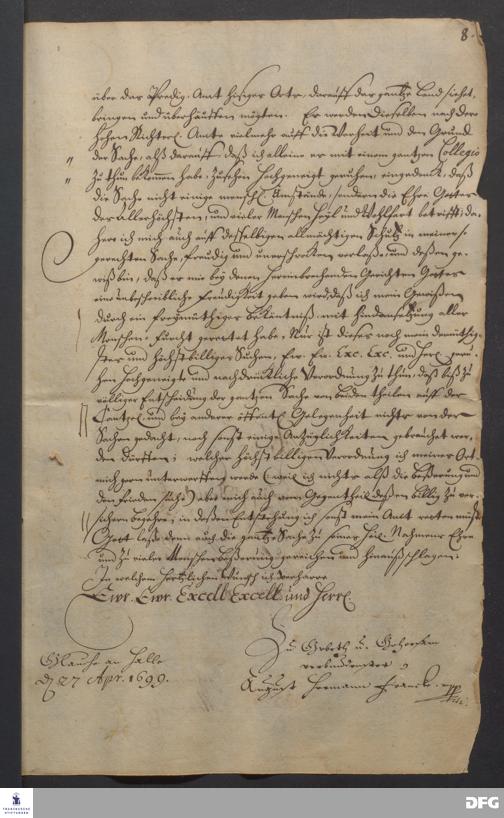 8.
über das Predig-Amt hiesiges Orts, darauff das gantze Land siehet,
bringen und überhäuffen mögten. Er werden dieselben nach Dero
hohen Richterl. Amte vielmehr auff die Warheit und den Grund
der Sache, alß darauff, daß ich alleine es mit einem gantzen Collegio
zu thun bekommen habe, zusehen hochgeneigt geruhen, eingedenck, daß
die Sache nicht einige menschl. Umstände, sondern die Ehre Gottes
des Allerhöchsten, und vieler Menschen Heyl und Wohlfart betrifft; da-
hero ich mich auch auff desselbigen allmächtigen Schutz in meiner
gerechten Sache, freudig und unerschrocken verlaße, und deßen ge-
wiß bin, daß er mir bey denen hereinbrechenden Gerichten Gottes
eine unbeschreibliche Freudigkeit geben wird, daß ich mein Gewißen
durch ein freymüthiges Bekäntniß, mit Hindansetzung aller
Menschen-Furcht gerettet habe. Nur ist dieses noch mein demüthig-
stes und höchstbilliges Suchen, Ew. Ew. Exc. Exc. und Herrl. geru-
hen hochgeneigte und nachdrückliche Verordnung zu thun, daß biß zu
völliger Entscheidung der gantzen Sache von beyden theilen auff der
Cantzel, und bey anderer öffentl. Gelegenheit nichts von der
Sachen gedacht, noch sonst einige Anzüglichkeiten gebrauchet wer-
den dürffen; welcher höchstbilligen Verordnung ich meines Ort-
mich gern unterwerffen werde (weil ich nichts alß die Beßerung und
den Frieden suche) aber mich auch vom Gegentheil deßen billig zu ver-
sichern begehre, in deßen Entstehung ich sonst mein Amt retten müste.
Gott laße denn auch die gantze Sache zu seines heil. Nahmens Ehre
und zu vieler Menschen Beßerung gereichen und hinaußschlagen.
In welchem hertzlichen Wunsch ich verharre
Ewr. Ewr. Excell. Excell. und Herrl.
Zu Gebeth u. Gehorsam
verbundenster
Glaucha an Halle
d. 27 Apr. 1699.
August Hermann Francke.
FRANCKESCHE
STIFTUNGEN
DFG